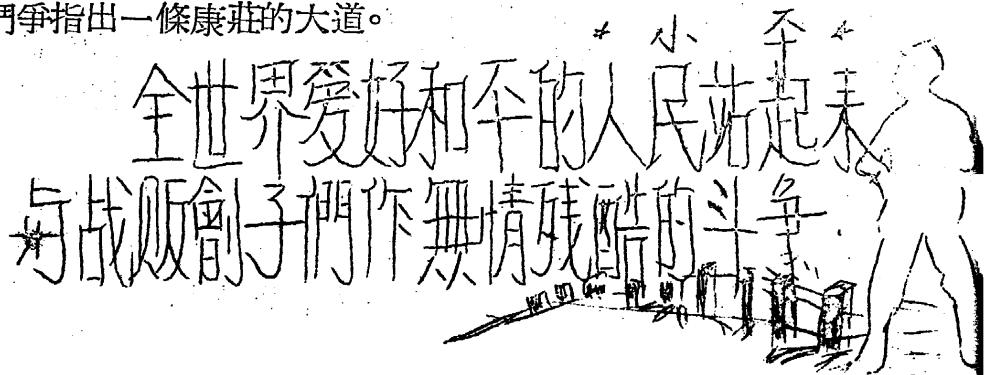 鬥爭指出一條康莊的大道。
小丕
全世界爱好和丕的人民站起来
与战贩劊子們作無情残酷的斗争